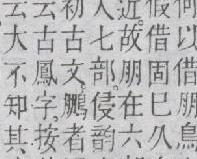 何以借朋鳥
假借固巳八
近。故朋在六
人七部。侵韵
初古文。鵬者
云古鳳字。按
云大不知其。